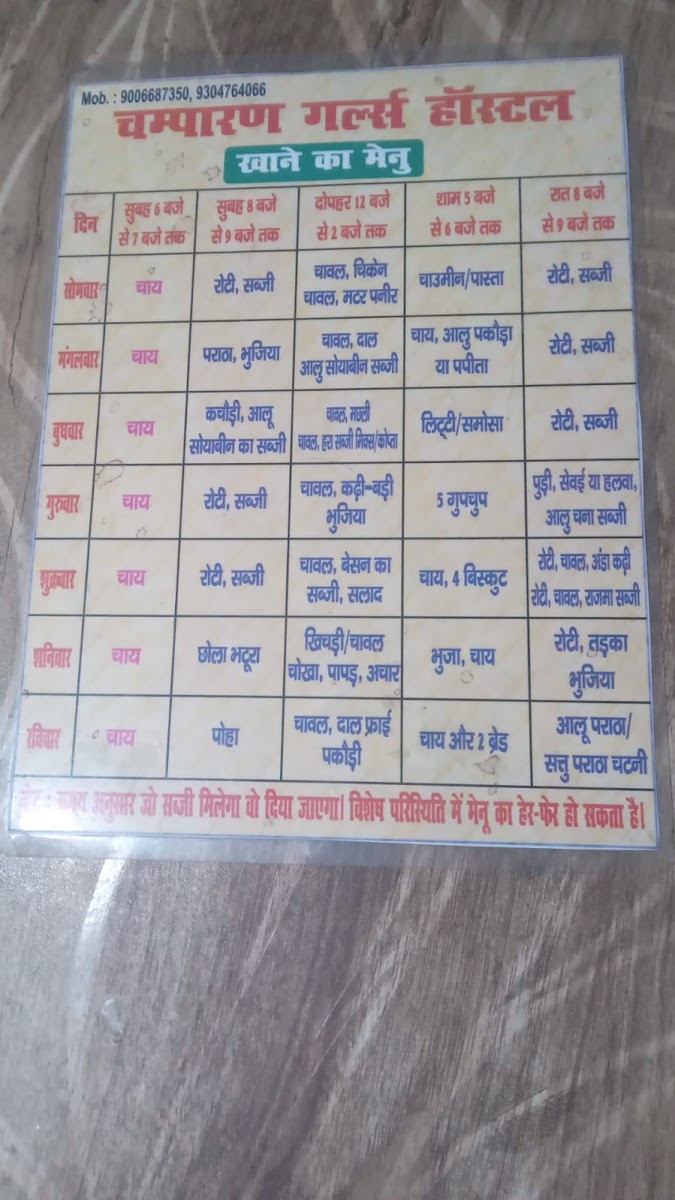 Mob. : 9006687350, 9304764066
चम्पारण गर्ल्स हॉस्टल
खाने का मेनु
दिन
सुबह 6 बजे
से 7 बजे तक
सुबह 8 बजे
से 9 बजे तक
दोपहर 12 बजे
से 2 बजे तक
शाम 5 बजे
से 6 बजे तक
रात 8 बजे
से 9 बजे तक
सोमवार
चाय
रोटी, सब्जी
चावल, चिकेन
चावल, मटर पनीर
चाउमीन/पास्ता
रोटी, सब्जी
मंगलवार
चाय
पराठा, भुजिया
चावल, दाल
आलु सोयाबीन सब्जी
चाय, आलु पकौड़ा
या पपीता
रोटी, सब्जी
बुधवार
चाय
कचौड़ी, आलू
सोयाबीन का सब्जी
चावल, मछली
चावल, हरा सब्जी मिक्स/कोप्ता
लिट्टी/समोसा
रोटी, सब्जी
गुरुवार
चाय
रोटी, सब्जी
चावल, कढ़ी-बड़ी
भुजिया
5 गुपचुप
पुड़ी, सेवई या हलवा,
आलु चना सब्जी
शुक्रवार
चाय
रोटी, सब्जी
चावल, बेसन का
सब्जी, सलाद
चाय, 4 बिस्कुट
रोटी, चावल, अंडा कढ़ी
रोटी, चावल, राजमा सब्जी
शनिवार
चाय
छोला भटूरा
खिचड़ी/चावल
चोखा, पापड़, अचार
भुजा, चाय
रोटी, तड़का
भुजिया
रविवार
चाय
पोहा
चावल, दाल फ्राई
पकौड़ी
चाय और 2 ब्रेड
आलू पराठा/
सत्तु पराठा चटनी
अनुसार जो सब्जी मिलेगा वो दिया जाएगा। विशेष परिस्थिति में मेनू का हेर-फेर हो सकता है।